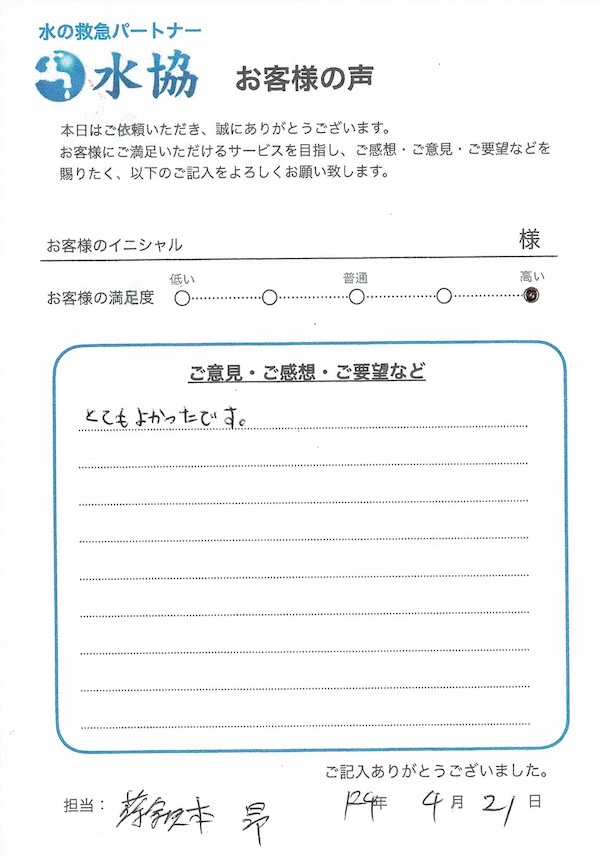 水の救急パートナー
水協 お客様の声
本日はご依頼いただき、誠にありがとうございます。
お客様にご満足いただけるサービスを目指し、ご感想・ご意見・ご要望などを
賜りたく、以下のご記入をよろしくお願い致します。
お客様のイニシャル 様
低い 普通 高い
お客様の満足度
ご意見・ご感想・ご要望など
とてもよかったです。
ご記入ありがとうございました。
担当： 本 昴 年 4月 21日